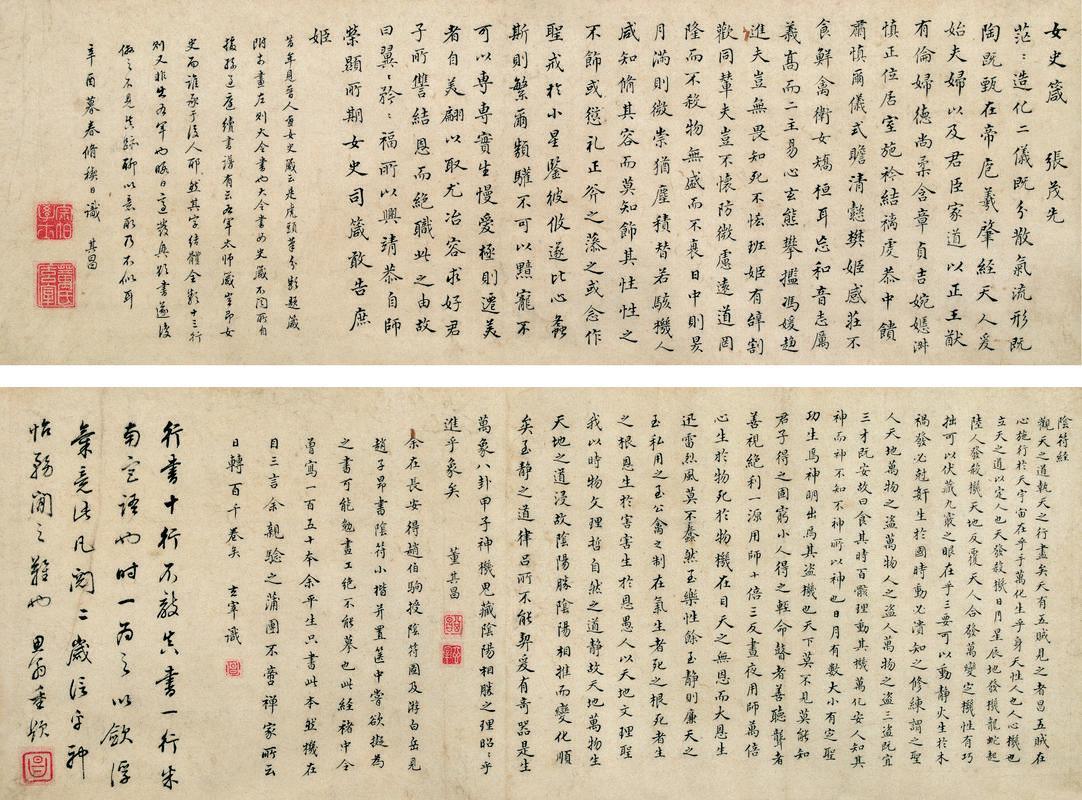 女史箴　張茂先
茫〻造化二儀既分散氣流形既
陶既甄在帝庖羲肇經天人爰
始夫婦以及君臣家道以正王猷
有倫婦德尚柔含章貞吉婉嫕淑
慎正位居室施衿結褵虔恭中饋
肅慎爾儀式瞻清懿樊姬感莊不
食鮮禽衛女矯桓耳忘和音志厲
義高而二主易心玄熊攀檻馮媛趍
進夫豈無畏知死不恡班姬有辭割
歡同輦夫豈不懷防微慮遠道罔
隆而不殺物無盛而不衰日中則昃
月滿則微崇猶塵積替若駭機人
咸知脩其容而莫知飾其性性之
不飾或愆礼正斧之藻之或念作
聖戒於小星鑒彼攸遂比心螽
斯則繁爾類驩不可以黷寵不
可以專專實生慢愛極則遷美
者自美翩以取尤冶容求好君
子所讐結恩而絕職此之由故
曰翼〻矜〻福所以興靖恭自師
榮顯所期女史司箴敢告庶
姬
昔年見晉人畫女史箴云是虎頭筆分類題箴
附於畫左則大令書也大令書女史箴不聞所自
按孫過庭續書譜有云右軍太師箴豈即女
史而誰承于後人耶然其字結體全類十三行
則又非出右軍也暇日適發興欲書遂復
倣之不見真跡聊以意取乃不似耳
辛酉暮春脩禊日識　其昌
陰符經
觀天之道執天之行盡矣天有五賊見之者昌五賊在
心施行於天宇宙在乎手萬化生乎身天性人也人心機也
立天之道以定人也天發殺機日月星辰地發殺機龍蛇起
陸人發殺機天地反覆天人合發萬變定機性有巧
拙可以伏藏九竅之眼在乎三要可以動靜火生於木
禍發必尅奸生於國時動必潰知之修練謂之聖
人天地萬物之盜萬物人之盜人萬物之盜三盜既宜
三才既安故曰食其時百骸理動其機萬化安人知其
神而神不知不神所以神也日月有數大小有定聖
功生焉神明出焉其盜機也天下莫不見莫能知
君子得之固窮小人得之輕命瞽者善聽聾者
善視絕利一源用師十倍三反晝夜用師萬倍
心生於物死於物機在目天之無恩而大恩生
迅雷烈風莫不蠢然至樂性餘至靜則廉天之
至私用之至公禽之制在氣生者死之根死者生
之根恩生於害害生於恩愚人以天地文理聖
我以時物文理哲自然之道靜故天地萬物生
天地之道浸故陰陽勝陰陽相推而變化順
矣至靜之道律呂所不能契爰有奇器是生
萬象八卦甲子神機鬼藏陰陽相勝之理昭乎
進乎象矣　董其昌
余在長安得趙伯駒授陰符圖及游白岳見
趙子昂書陰符小楷并置篋中嘗欲擬為
之書可能勉畫工絕不能摹也此經褚中令
曾寫一百五十本余平生只書此本然機在
目三言余親驗之蒲團不啻禪家所云
日轉百千卷矣　玄宰識
行書十行不敵真書一行米
南宮語也時一為之以歛浮
氣竟此凡閱二歲信乎神
怡務閒之難也　思翁重題